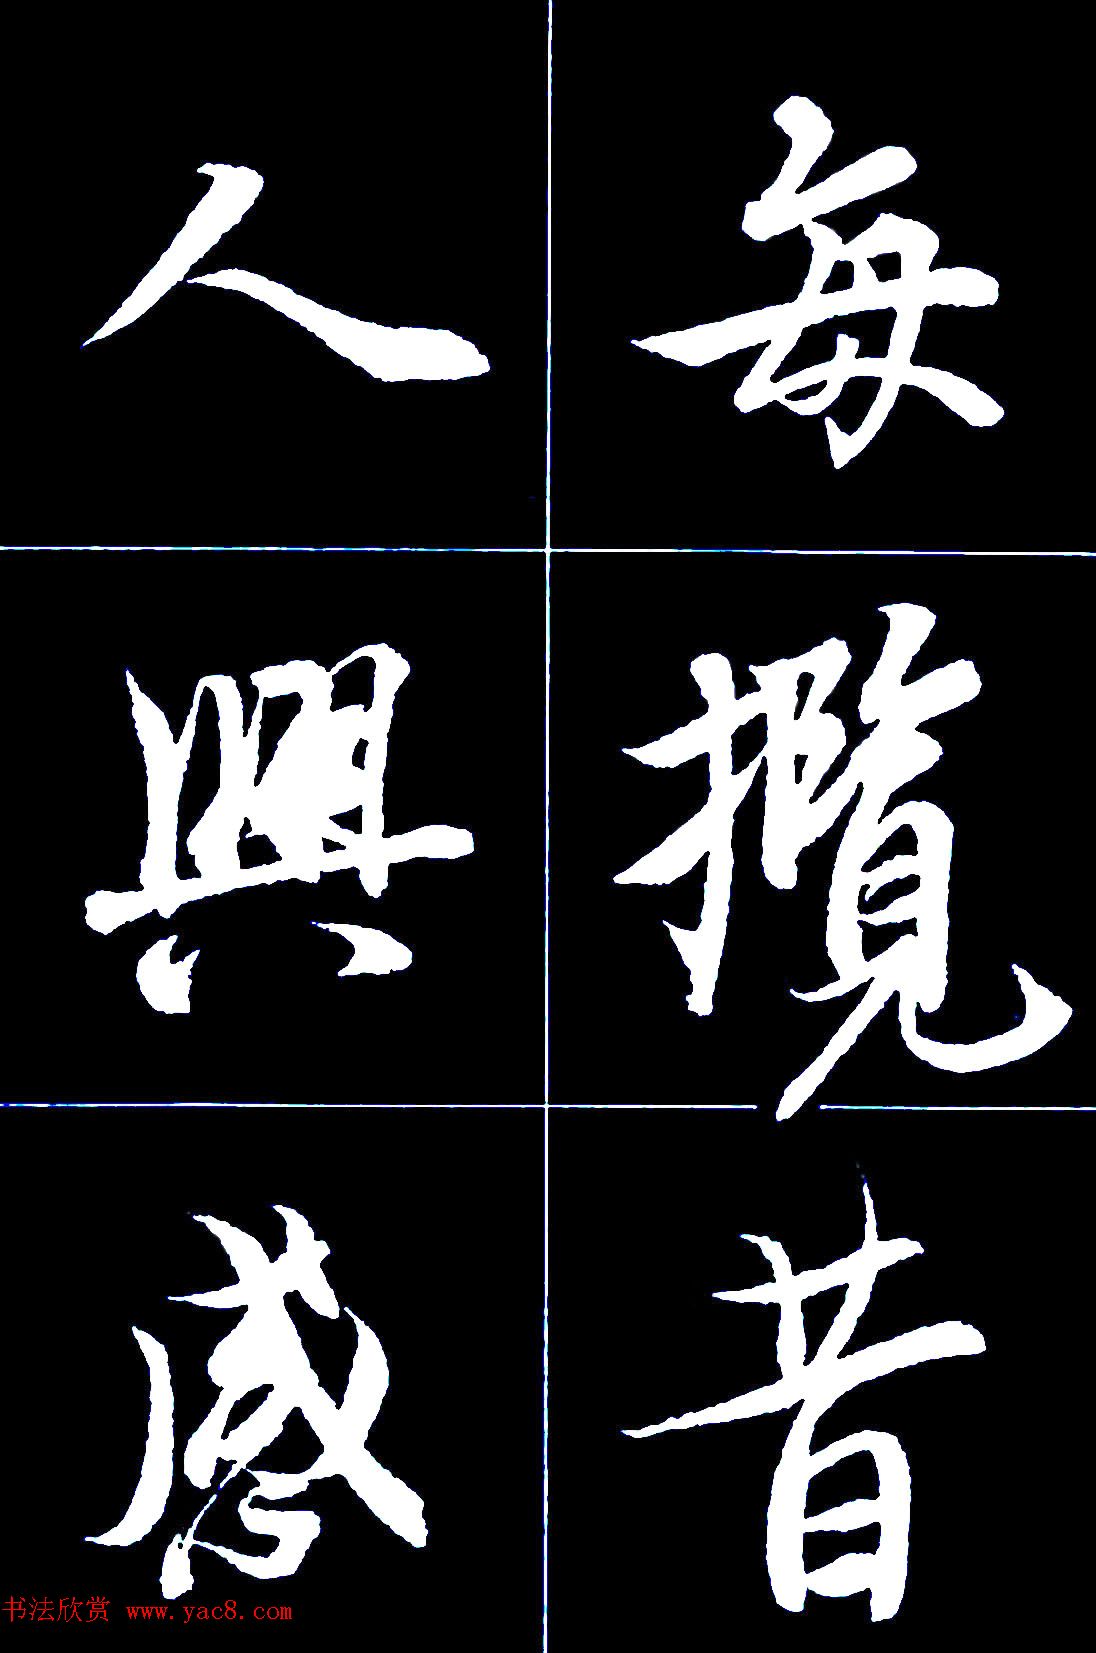 每攬昔
人興感
书法欣赏 www.yac8.com